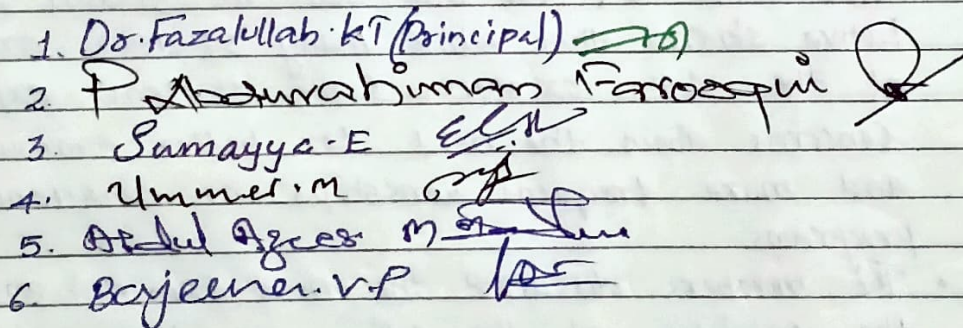 1. Dr. Fazalullah. KT (Principal)
2. P Abdurahiman Farooqui
3. Sumayya. E
4. Ummer. M
5. Abdul Azees M
6. Bajeena. V.P